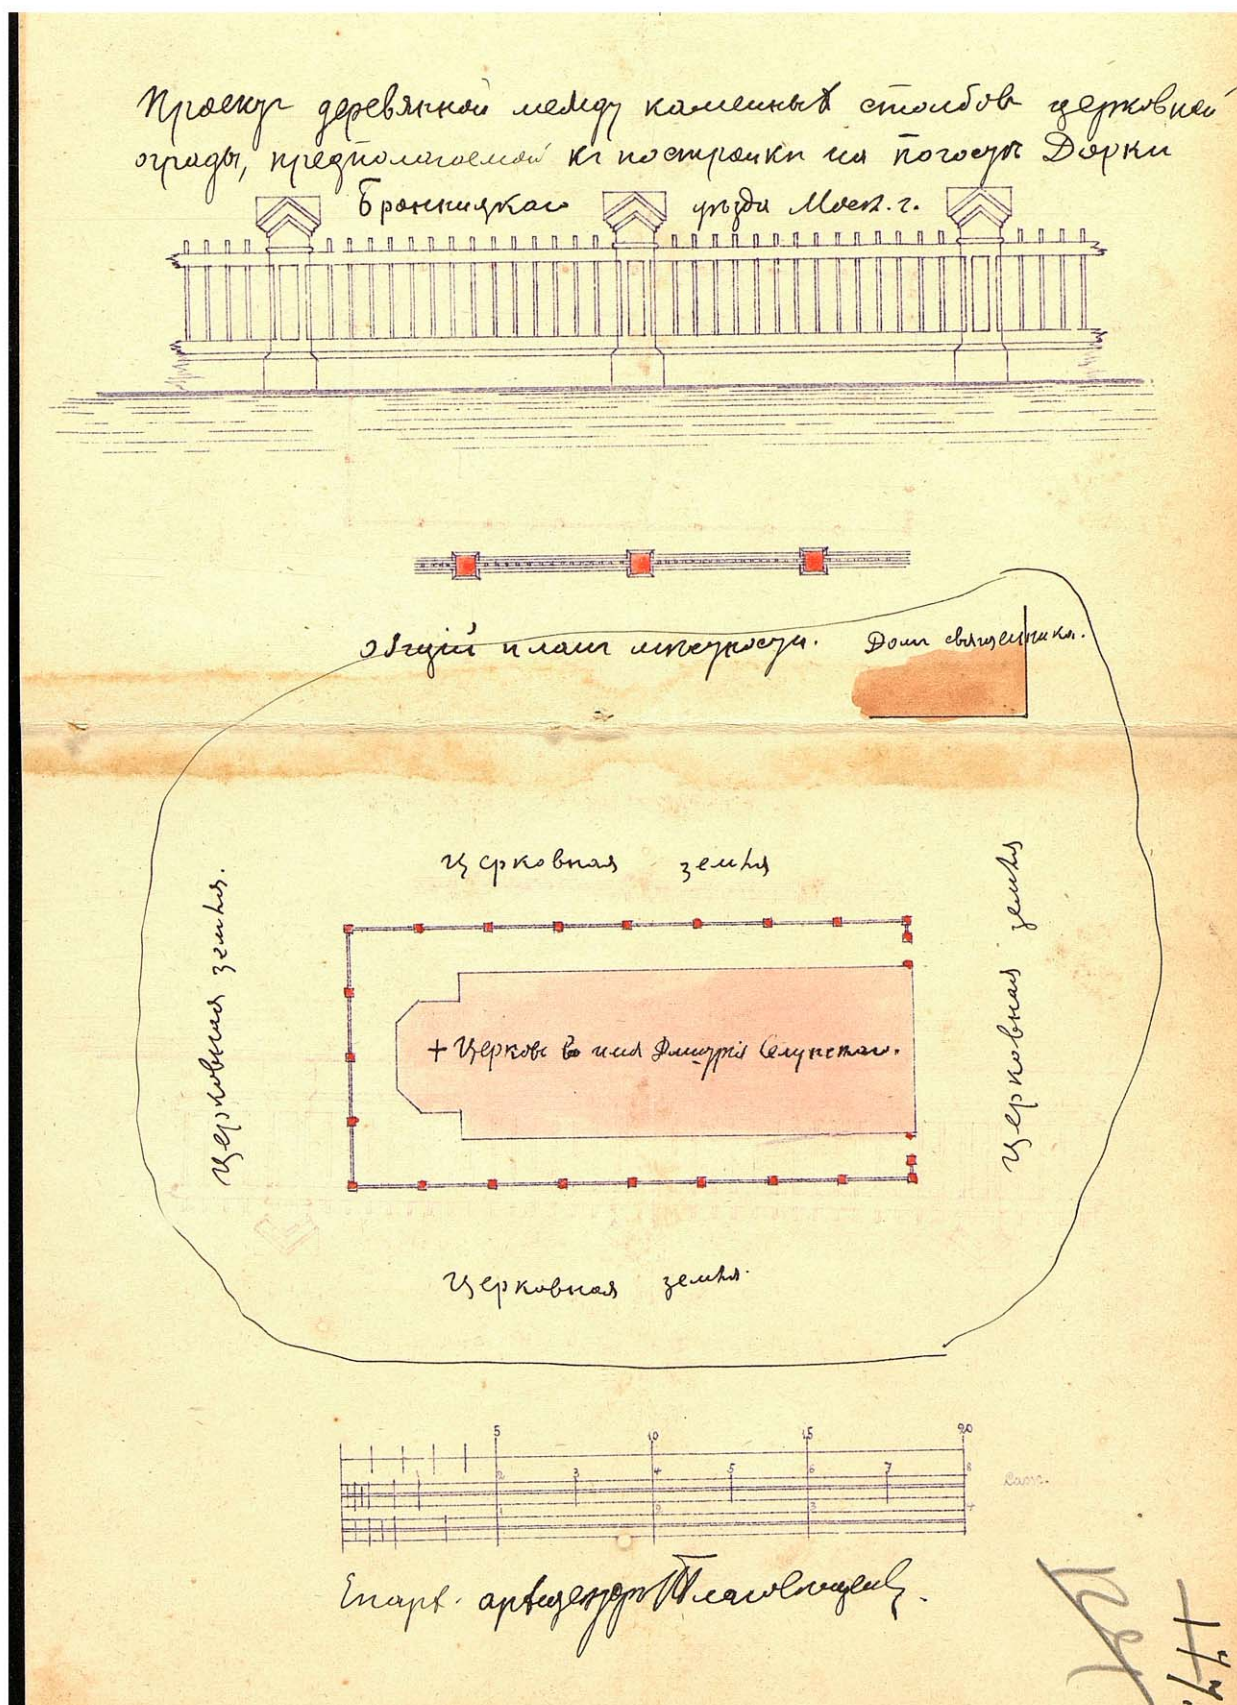 Проектъ деревянной между каменныхъ столбовъ церковной
ограды, предполагаемой къ постройкѣ на погостѣ Дорки
Бронницкаго уѣзда Моск. г.
Общій планъ мѣстности.
Домъ священника.
Церковная земля
Церковная земля.
Церковная земля
+ Церковь во имя Дмитрія Селунскаго.
Церковная земля.
5 10 15 20
2 3 4 5 6 7 8
Саж.
1 2 3 4
Епарх. архитекторъ Благовещенск